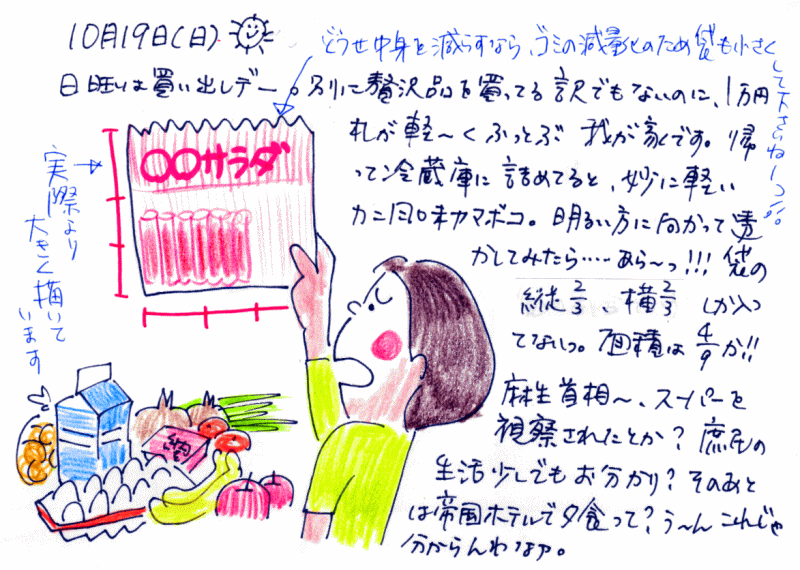 10月19日(日)
どうせ中身を減らすなら、ゴミの減量化のため袋も小さくして下さいねーっ!!。
日曜は買い出しデー。別に贅沢品を買ってる訳でもないのに、1万円
札が軽〜くふっとぶ 我が家です。帰
って冷蔵庫に詰めてると、妙に軽い
カニ風味カマボコ。明るい方に向かって透
かしてみたら……あら〜っ!!! 袋の
縦2/3、横2/3 しか入っ
てないっ。面積は4/9か!!
麻生首相〜、スーパーを
視察されたとか? 庶民の
生活少しでもお分かり? そのあと
は帝国ホテルで夕食って? う〜ん これじゃ
分からんわなァ。
〇〇サラダ
実際より
大きく描いて
います